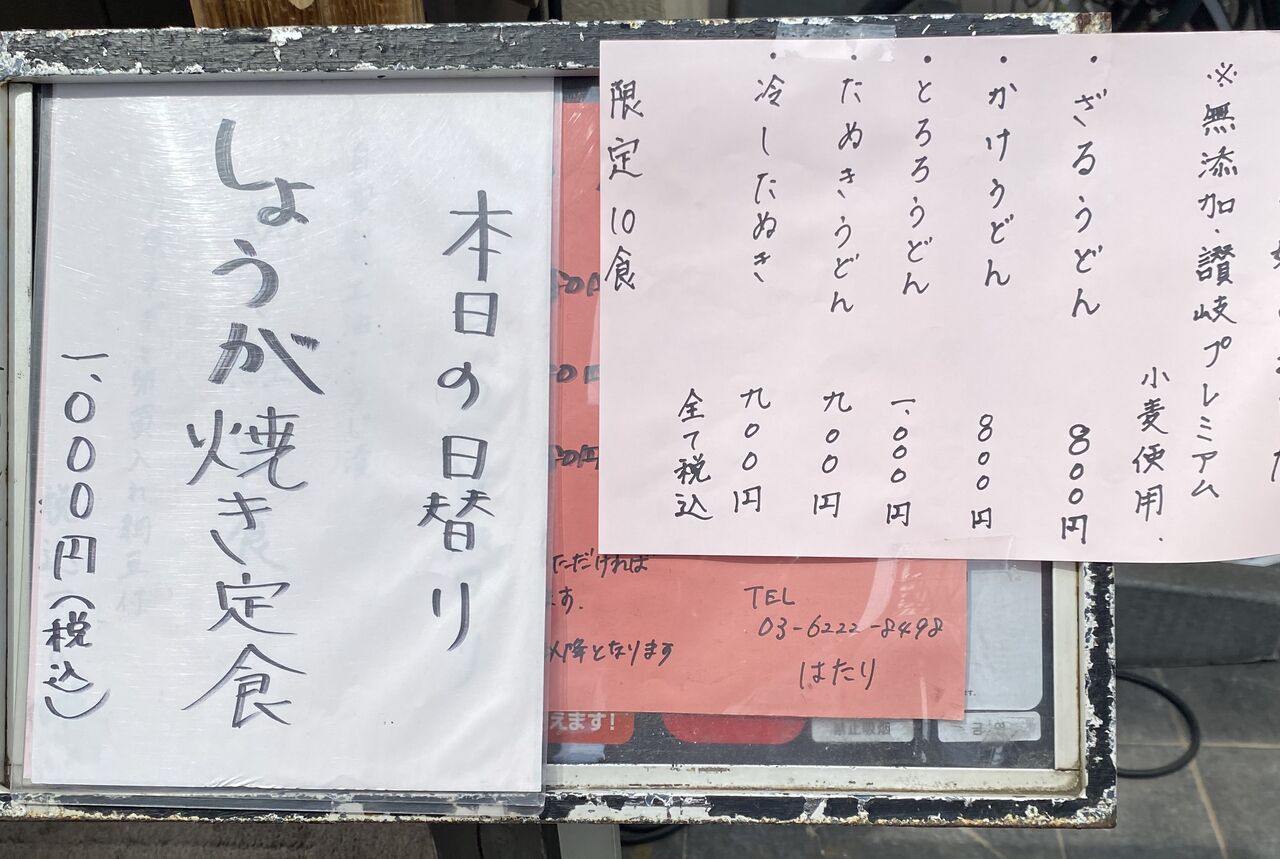 本日の日替り
しょうが焼き定食
一、000円(税込)
※無添加・讃岐プレミアム
小麦使用.
・ざるうどん 800円
・かけうどん 800円
・とろろうどん 一、000円
・たぬきうどん 九00円
・冷したぬき 九00円
全て税込
限定10食
ただければ
ます.
以降となります
TEL
03-6222-8498
はたり
えます!
禁止吸烟
금연